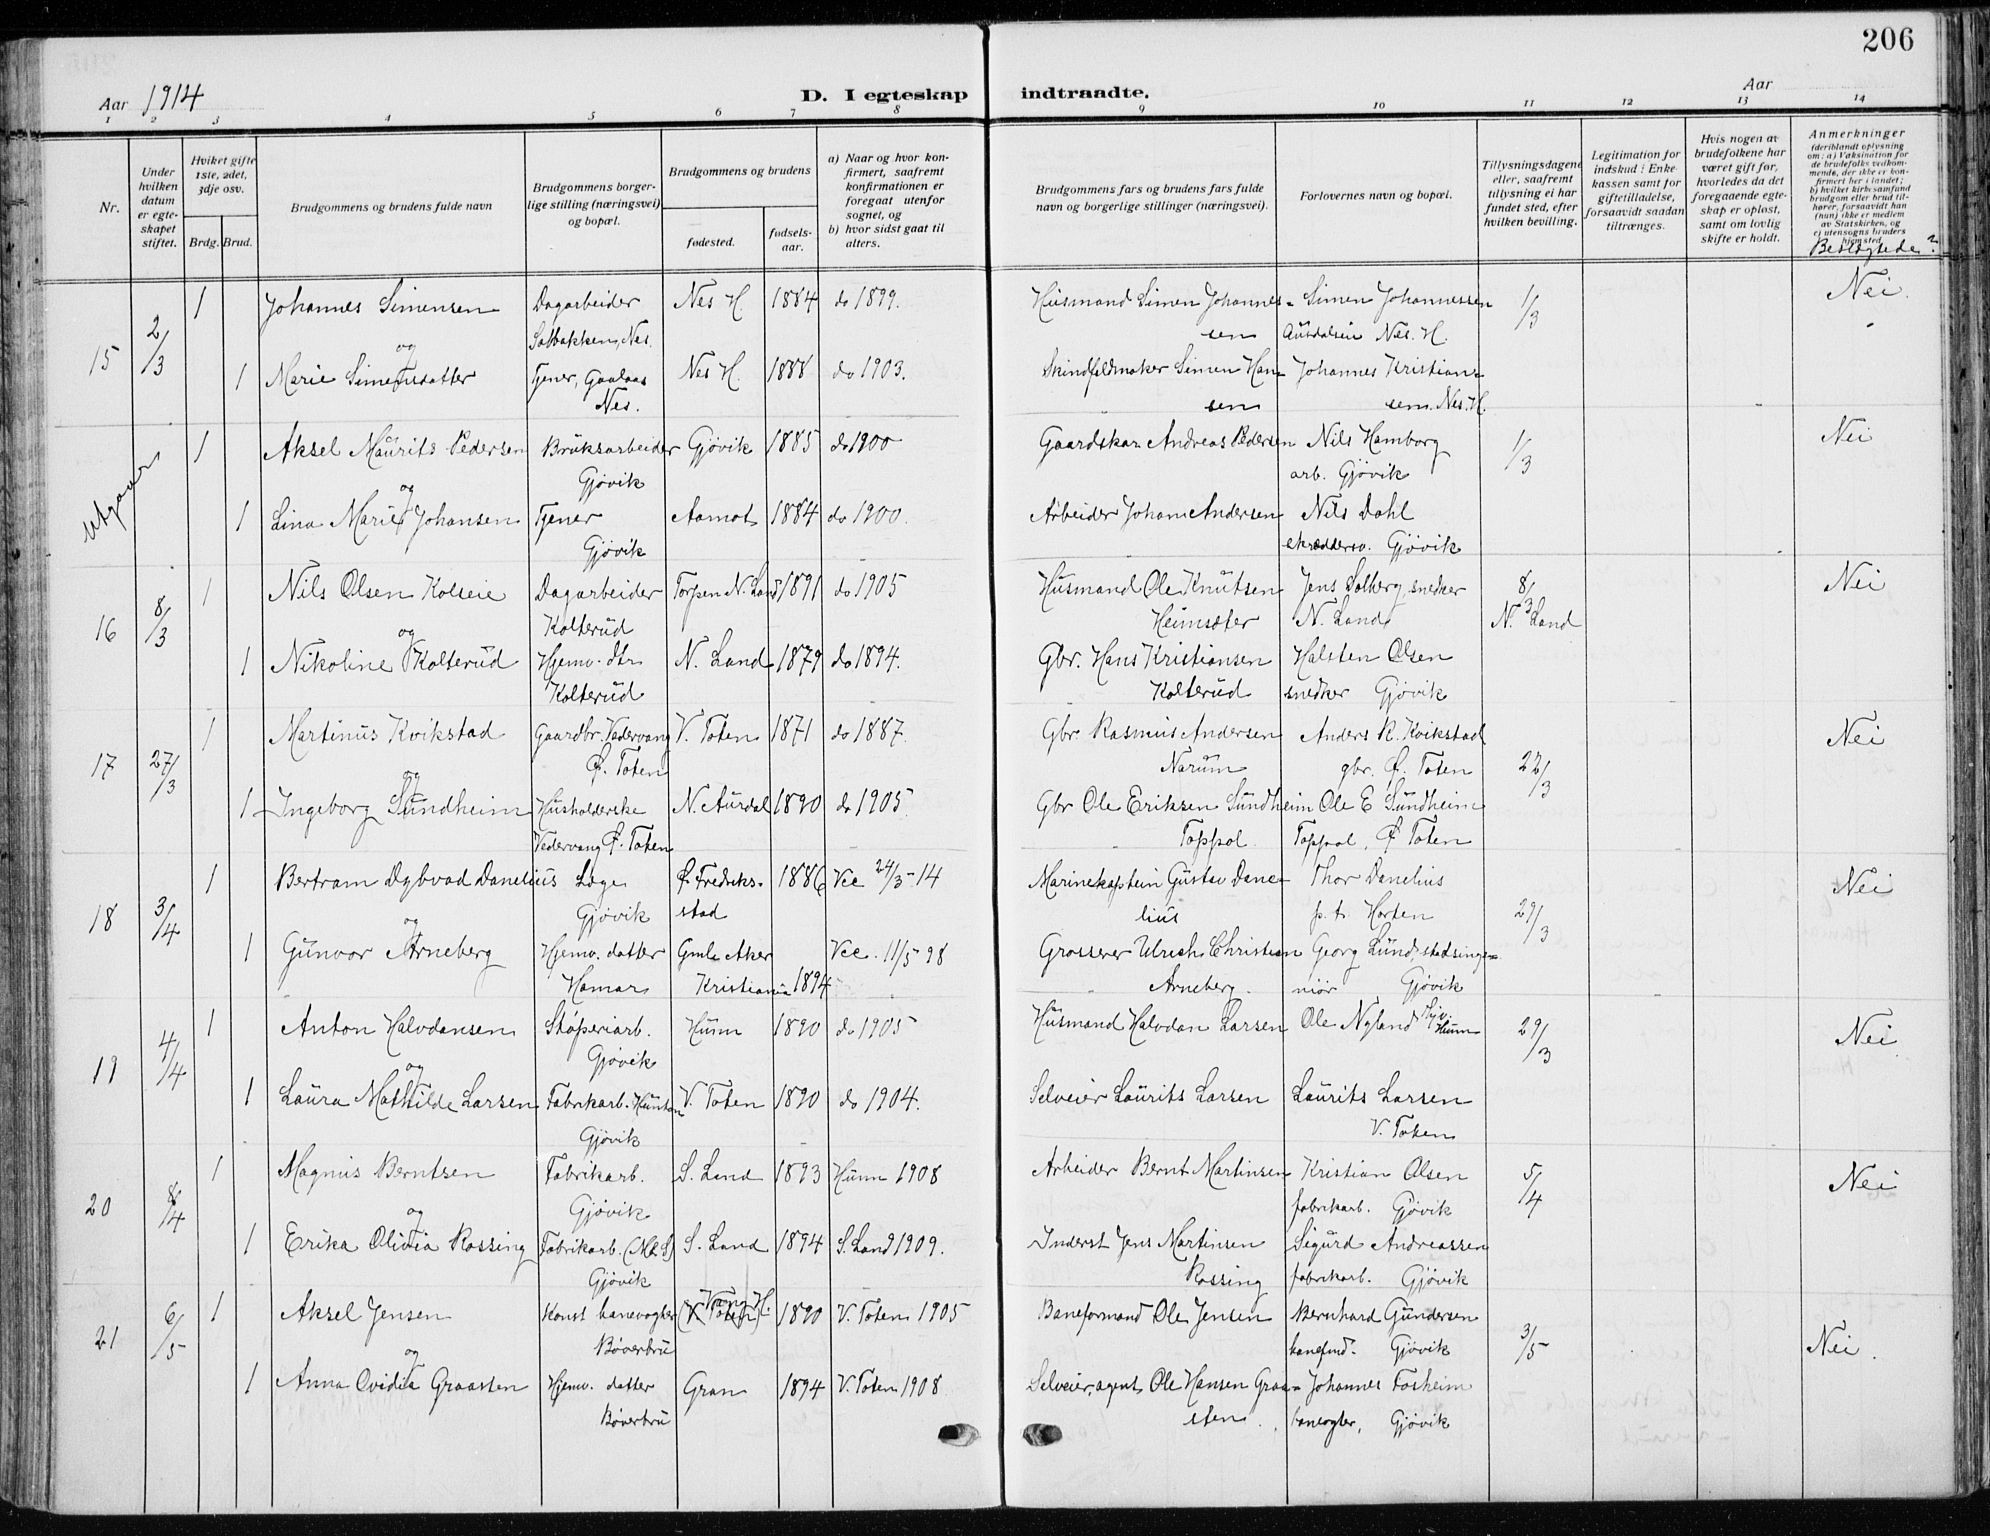 206
Aar 1914
D. I egteskap indtraadte.
Aar
1 2 3 4 5 6 7 8 9 10 11 12 13 14
Nr.
Under hvilken datum er egteskapet stiftet.
Hviket gifte 1ste, 2det, 3dje osv.
Brdg. Brud.
Brudgommens og brudens fulde navn
Brudgommens borgerlige stilling (næringsvei) og bopæl.
Brudgommens og brudens
fødested.
fødselsaar.
a) Naar og hvor konfirmert, saafremt konfirmationen er foregaat utenfor sognet, og
b) hvor sidst gaat til alters.
Brudgommens fars og brudens fars fulde navn og borgerlige stillinger (næringsvei).
Forlovernes navn og bopæl.
Tillysningsdagene eller, saafremt tillysning ei har fundet sted, efter hvilken bevilling.
Legitimation for indskud i Enkekassen samt for giftetilladelse, forsaavidt saadan tiltrænges.
Hvis nogen av brudefolkene har været gift før, hvorledes da det foregaaende egteskap er opløst, samt om lovlig skifte er holdt.
Anmerkninger
(deriblandt oplysning om: a) Vaksination for de brudefolks vedkommende, der ikke er konfirmert her i landet; b) hvilket kirkesamfund brudgom eller brud tilhører, forsaavidt han (hun) ikke er medlem av Statskirken, og c) utensogns bruders hjemsted.
Beslegtede?
15 2/3 1 Johannes Simensen Dagarbeider Nes H. 1884 do 1899. Husmand Simen Johannes- Simen Johannessen 1/3 Nei.
og Nes. sen Nes. H.
1 Marie Simensdatter Tjener, Gaalaas Nes H. 1888 do 1903. Skindfeldmaker Simen Han- Johannes Kristian-
Nes. sen sen. Nes. H.
Utgaar 1 Aksel Maurits Pedersen Bruksarbeider Gjøvik 1885 do 1900 Gaardskar Andreas Pedersen Nils Hamborg 1/3 Nei
og Gjøvik arb. Gjøvik
1 Lina Marie Johansen Tjener Aamot 1884 do 1900. Arbeider Johan Andersen Nils Dahl
Gjøvik skræddersv. Gjøvik
16 8/3 1 Nils Olsen Kolseie Dagarbeider Torpen N. Land 1891 do 1905 Husmand Ole Knutsen Jens Solberg snedker 8/3 Nei
og Kolterud Heimsæter N. Land N. Land
1 Nikoline Kolterud Hjemv. dtr N. Land 1879 do 1894. Gbr. Hans Kristiansen Halsten Olsen
Kolterud Kolterud snedker Gjøvik
17 27/3 1 Martinus Kvikstad Gaardbr. Vedervang V. Toten 1871 do 1887. Gbr. Rasmus Andersen Anders R. Kvikstad 22/3 Nei
og Ø. Toten Narum gbr. Ø. Toten
1 Ingeborg Sundheim Husholderske N. Aurdal 1890 do 1905. Gbr Ole Eriksen Sundheim Ole E Sundheim
Vedervang Ø. Toten Toppol. Toppol, Ø Toten
18 3/4 1 Bertram Dybvad Danelius Læge Ø. Fredrik- 1886 Vee 24/3-14 Marinekaptein Gustav Dane- Thor Danelius 29/3 Nei
og Gjøvik stad lius p. t. Horten
1 Gunvor Arneberg Hjemv. datter Gmle Aker Vee. 11/5 98 Grosserer Ulrich Christian Georg Lund, stadsinge-
Hamar Kristiania 1894 Arneberg. niør Gjøvik
19 4/4 1 Anton Halvdansen Støperiarb. Hunn 1890 do 1905 Husmand Halvdan Larsen Ole Nyland Hunn 29/3 Nei
og Gjøvik
1 Laura Mathilde Larsen Fabrikarb. Hunton V. Toten 1890 do 1904. Selveier Laurits Larsen Laurits Larsen
Gjøvik V. Toten
20 8/4 1 Magnus Berntsen Fabrikarb. S. Land 1893 Hunn 1908 Arbeider Bernt Martinsen Kristian Olsen 5/4 Nei
og Gjøvik fabrikarb. Gjøvik
1 Erika Olivia Rossing Fabrikarb. S. Land 1894 S. Land 1909. Inderst Jens Martinsen Sigurd Andreassen
Gjøvik Rossing fabrikarb. Gjøvik
21 6/5 1 Aksel Jensen Konst banevogter (V. Toten) 1890 V. Toten 1905 Baneformand Ole Jensen Bernhard Gundersen 3/5 Nei.
og Bøverbru banefmd. Gjøvik
1 Anna Ovidia Graasten Hjemv. datter Gran 1894 V. Toten 1908 Selveier, agent Ole Hansen Graa- Johannes Fosheim
Bøverbru sten. banevogter, Gjøvik